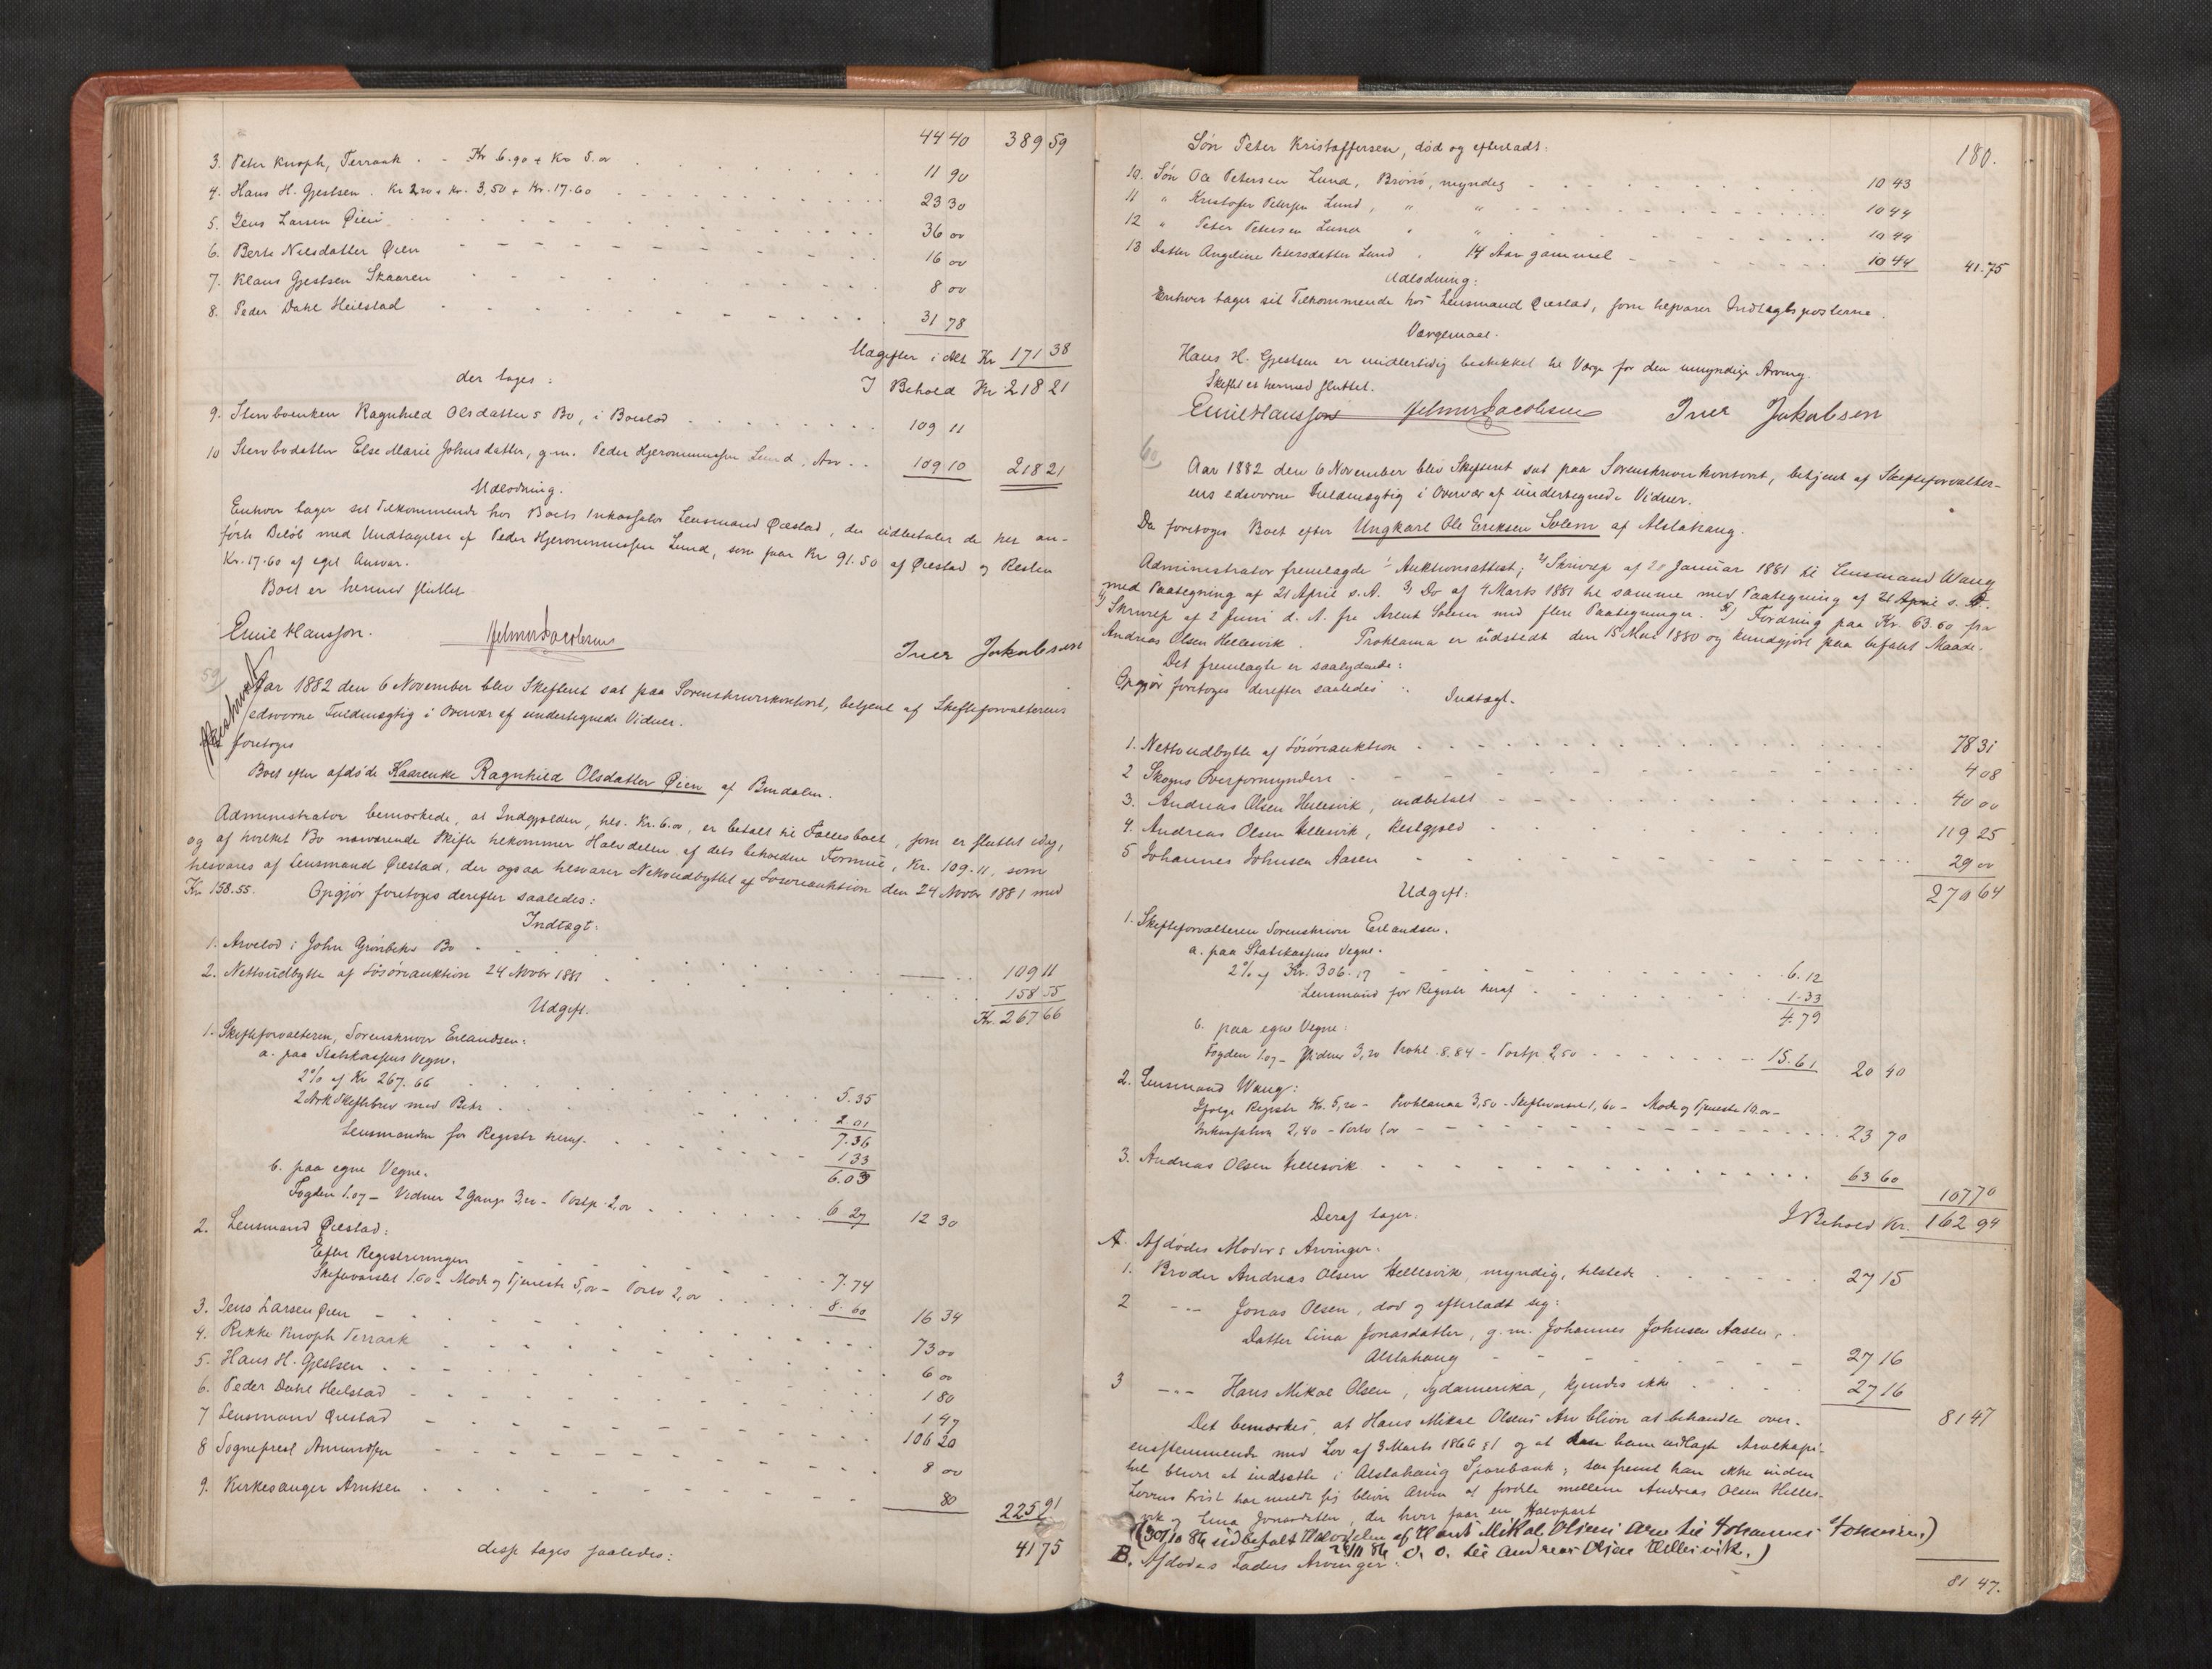 44 40 389 59
3. Peter Knoph, Terraak . - Kr 6.90 + Kr 5.00 11 90
4. Hans H. Gjestsen . Kr 2,20 + Kr. 3,50 + Kr. 17.60 23 30
5. Jens Larsen Øien 36 00
6. Berte Nilsdatter Øien 16 00
7. Klaus Gjestsen Skaaren 8 00
8. Peder Dahl Heilstad 31 78
Udgifter i Alt Kr 171 38
I Behold Kr 218 21
der tages :
9. Stervboenken Ragnhild Olsdatters Bo, i Boeslod 109 11
10 Stervbodatter Else Marie Johnsdatter, g.m. Peder Hjeronimussen Lund, Arv 109 10 218 21
Udlodning.
Enhver tager sit Tilkommende hos Boets Inkassator Lensmand Qvestad, der udbetaler de her an-
førte Beløb med Undtagelse af Peder Hjeronimussen Lund, som faar Kr 91.50 af Qvestad og Resten
Kr. 17.60 af eget Ansvar.
Boet er hermed sluttet
Emil Hansson. Helmer Jacobsen Iver Jakobsen
59
Aar 1882 den 6 November blev Skifteret sat paa Sorenskriverkontoret, betjent af Skifteforvalterens
edsvorne Fuldmægtig i Overvær af undertegnede Vidner.
foretoges
Boet efter afdøde Kaarenke Ragnhild Olsdatter Øien af Bindalen.
Administrator bemærkede, at Indgjælden, hls. Kr. 6.00, er betalt til Fællesboet, som er sluttet idag,
og af hvilket Bo nærværende Skifte tilkommer Halvdelen af dets beholdne Formue, Kr. 109.11, som
hesvares af Lensmand Qvestad, der ogsaa hesvarer Nettoudbyttet af Løsøreauktion den 24 Novbr 1881 med
Kr 158.55. Opgjør foretoges derefter saaledes:
Indtægt:
1. Arvelod i John Grønbeks Bo 109 11
2. Nettoudbytte af Løsøreauktion 24 Novbr 1881 158 55
Kr. 267 66
Udgift.
1. Skifteforvalteren, Sorenskriver Erlandsen:
a. paa Statskassens Vegne.
2% af Kr 267.66 5.35
2 Ark Skiftebrev med Bekr. 2.01
7.36
Lensmanden for Registr heraf. 1 33
6.03
b. paa egne Vegne.
Fogden 1.07 - Vidner 2 Gange 3,20 - Postp. 2,00 6 27 12 30
2. Lensmand Qvestad:
Efter Registreringen 7.74
Skiftevarslet 1.60 - Møde og Tjeneste 5,00 - Porto 2,00 8.60 16 34
3. Jens Larsen Øien 73 00
4. Rikke Knoph Terraak 6 00
5. Hans H. Gjestsen 1 80
6. Peder Dahl Heilstad 1 47
7 Lensmand Qvestad 106 20
8 Sogneprest Amundsen 8 00
9. Kirkesanger Arntsen 80 225 91
41 75
disse tages saaledes:
180.
Søn Peter Kristoffersen, død og efterladt:
10. Søn Ole Petersen Lund, Brønø, myndig 10 43
11 " Kristofer Petersen Lund, " " 10 44
12 " Peter Petersen Lund " " 10 44
13 Datter Angeline Petersdatter Lund " 14 Aar gammel 10 44 41.75
Udlodning:
Enhver tager sit Tilkommende hos Lensmand Qvestad, som hesvarer Indtægtsposterne.
Værgemaal.
Hans H. Gjestsen er midlertidig beskikket til Værge for den umyndige Arving.
Skiftet er hermed sluttet.
Emil Hansson Helmer Jacobsen Iver Jakobsen
60
Aar 1882 den 6 November blev Skifteret sat paa Sorenskriverkontoret, betjent af Skifteforvalter-
ens edsvorne Fuldmægtig i Overvær af undertegnede Vidner.
Da foretoges Boet efter Ungkarl Ole Eriksen Solem af Alstahaug.
Administrator fremlagde 1) Auktionsattest; 2) Skrivelse af 20 Januar 1881 til Lensmand Wang
med Paategning af 21 April s. A. 3) Do af 4 Marts 1881 til samme med Paategning af 21 April s. A.
4) Skrivelse af 2 Juni d. A. fra Arent Solem med flere Paategninger. 5) Fordring paa Kr. 63.60 fra
Andreas Olsen Hellesvik. Proklama er udstedt den 15 Mai 1880 og kundgjort paa befalet Maade.
Det fremlagte er saalydende:
Opgjør foretoges derefter saaledes :
Indtægt.
1. Nettoudbytte af Løsøreauktion 78 31
2 Skogns Overformynderi 4 08
3. Andreas Olsen Hellesvik, indbetalt 40 00
4. Andreas Olsen Hellesvik, Restgjæld 119 25
5 Johannes Johnsen Aasen 29 00
270 64
Udgift:
1. Skifteforvalteren Sorenskriver Erlandsen.
a. paa Statskassens Vegne.
2% af Kr. 306.17 6.12
Lensmand for Registr heraf 1.33
4.79
b. paa egne Vegne:
Fogden 1.07 - Vidner 3,20 Prokl. 8.84 - Postp 2,50 15.61 20 40
2. Lensmand Wang:
Ifølge Registr Kr. 5,20 - Proklama 3,50 - Skiftevarsel 1,60 - Møde og Tjeneste 10.00 -
Inkassation 2,40 - Porto 1,00 23 70
3. Andreas Olsen Hellesvik 63 60 107 70
I Behold Kr. 162 94
Deraf tager:
A. Afdødes Moders Arvinger.
1. Broder Andreas Olsen Hellesvik, myndig, tilstede 27 15
2 -„- Jonas Olsen, død og efterladt sig:
Datter Lina Jonasdatter, g.m. Johannes Johnsen Aasen,
Alstahaug 27 16
3 -„- Hans Mikal Olsen, Sydamerika, kjendes ikke 27 16
81 47
Det bemærkes, at Hans Mikal Olsens Arv bliver at behandle over-
ensstemmende med Lov af 3 Marts 1866 § 1 og at den ham udlagte Arvekapi-
tal bliver at indsætte i Alstahaug Sparebank; saafremt han ikke inden
Lovens Frist har meldt sig bliver Arven at fordele mellem Andreas Olsen Helles-
vik og Lina Jonasdatter, der hver faar en Halvpart
(30/10 86 udbetalt Halvdelen af Hans Mikal Olsens Arv til Johannes Johnsen)
86 d. o. til Andreas Olsen Hellesvik.)
B. Afdødes Faders Arvinger.
81 47.